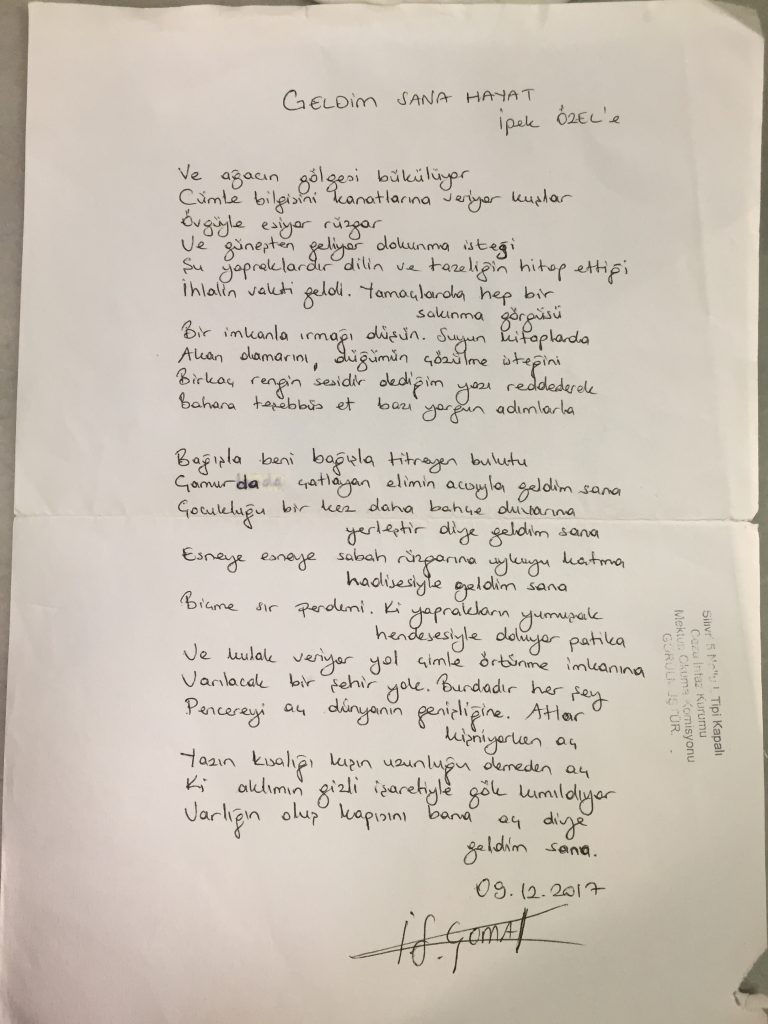 GELDİM SANA HAYAT
İpek ÖZEL'e
Ve ağacın gölgesi bükülüyor
Cümle bilgisini kanatlarına veriyor kuşlar
Övgüyle esiyor rüzgar
Ve güneşten geliyor dokunma isteği
Şu yapraklardır dilin ve tazeliğin hitap ettiği
İhlalin vakti geldi. Yamaçlarda hep bir
sakınma görgüsü
Bir imkanla ırmağı düşün. Suyun kitaplarda
Akan damarını, düğümün çözülme isteğini
Birkaç rengin sesidir dediğim yazı reddederek
Bahara teşebbüs et bazı yorgun adımlarla
Bağışla beni bağışla titreyen bulutu
Çamurda çatlayan elimin acısıyla geldim sana
Çocukluğu bir kez daha bahçe duvarına
yerleştir diye geldim sana
Esneye esneye sabah rüzgarına uykuyu katma
hadisesiyle geldim sana
Biçme sır perdemi. Ki yaprakların yumuşak
hendesesiyle doluyor patika
Ve kulak veriyor yol çimle örtünme imkanına
Varılacak bir şehir yok. Burdadır her şey
Pencereyi aç dünyanın genişliğine. Atlar
kişniyorken aç
Yazın kısalığı kışın uzunluğu demeden aç
Ki aklımın gizli işaretiyle gök kımıldıyor
Varlığın oluş kapısını bana aç diye
geldim sana.
09.12.2017
İlh. ÇOMAK
Silivri 5 Nolu L Tipi Kapalı
Ceza İnfaz Kurumu
Mektup Okuma Komisyonu
GÖRÜLMÜŞTÜR.